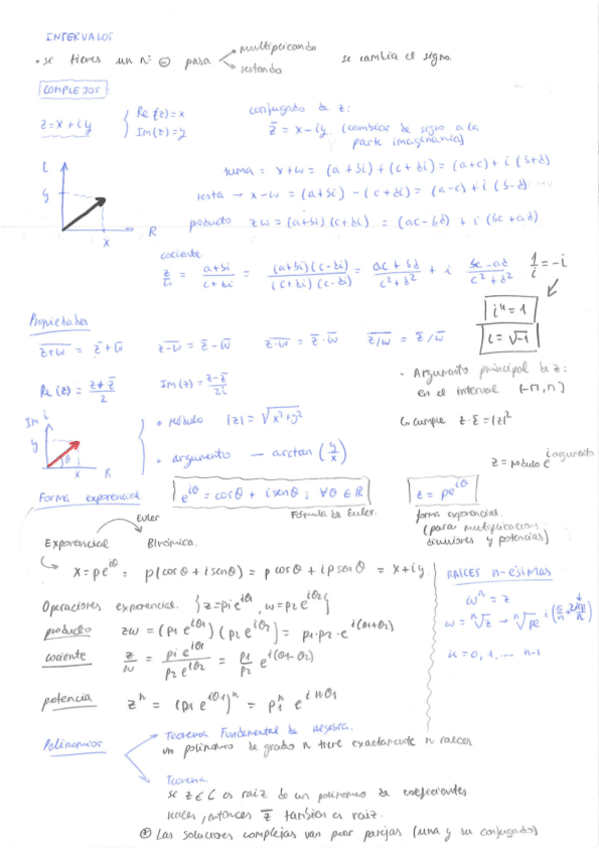 INTERVALOS
• si tienes un nº ⊖ pasa multiplicando se cambia el signo.
restando
COMPLEJOS
z = x + iy { Re(z) = x
Im(z) = y
conjugado de z:
z̄ = x - iy. (cambiar de signo a la
parte imaginaria)
i
y
x R
suma = x+w = (a+bi) + (c+di) = (a+c) + i (b+d)
resta → x-w = (a+bi) - (c+di) = (a-c) + i (b-d)
producto zw = (a+bi)(c+di) = (ac-bd) + i (bc+ad)
cociente
z/w = a+bi/c+di = (a+bi)(c-di)/(c+di)(c-di) = ac+bd/c²+d² + i bc-ad/c²+d²
1/i = -i
i⁴ = 1
i = √-1
Propiedades
z+w̅ = z̄ + w̄ z-w̅ = z̄ - w̄ z·w̅ = z̄ · w̄ z/w̅ = z̄/w̄
Re(z) = z+z̄/2 Im(z) = z-z̄/2i
• Argumento principal de z:
en el interval (-π,π)
↳ cumple z·z̄ = |z|²
Im i
y
θ
x R
• Módulo |z| = √x²+y²
• argumento — arctan (y/x)
z = módulo e^i argumento
Forma exponencial
e^iθ = cosθ + i senθ ; ∀θ ∈ R
Fórmula de Euler.
z = ρe^iθ
forma exponencial.
(para multiplicaciones
divisiones y potencias)
Euler
Exponencial Binómica.
x = ρe^iθ = ρ(cosθ + i senθ) = ρ cosθ + iρ senθ = x + iy.
RAICES n-esimas
wⁿ = z
w = ⁿ√z → ⁿ√ρe
k = 0, 1, ... n-1
Operaciones exponencial. {z = ρ1 e^iθ1, w = ρ2 e^iθ2}
producto zw = (ρ1 e^iθ1)(ρ2 e^iθ2) = ρ1·ρ2·e^i(θ1+θ2)
cociente z/w = ρ1 e^iθ1/ρ2 e^iθ2 = ρ1/ρ2 e^i(θ1-θ2)
potencia zⁿ = (ρ1 e^iθ1)ⁿ = ρ1ⁿ e^i nθ1
Polinomios
Teorema Fundamental de algebra.
un polinomio de grado n tiene exactamente n raices
Teorema.
se z ∈ C es raiz de un polinomio de coeficientes
reales, entonces z̄ tambien es raiz.
⊕ Las soluciones complejas van por parejas (una y su conjugado)